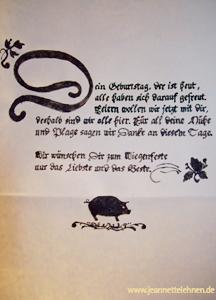 Dein Geburtstag, der ist heut,
alle haben sich darauf gefreut.
Feiern wollen wir jetzt mit dir,
deshalb sind wir alle hier. Für all deine Mühe
und Plage sagen wir Danke an diesem Tage.
Wir wünschen Dir zum Wiegenfeste
nur das Liebste und das Beste.
www.jeannettelehnen.de